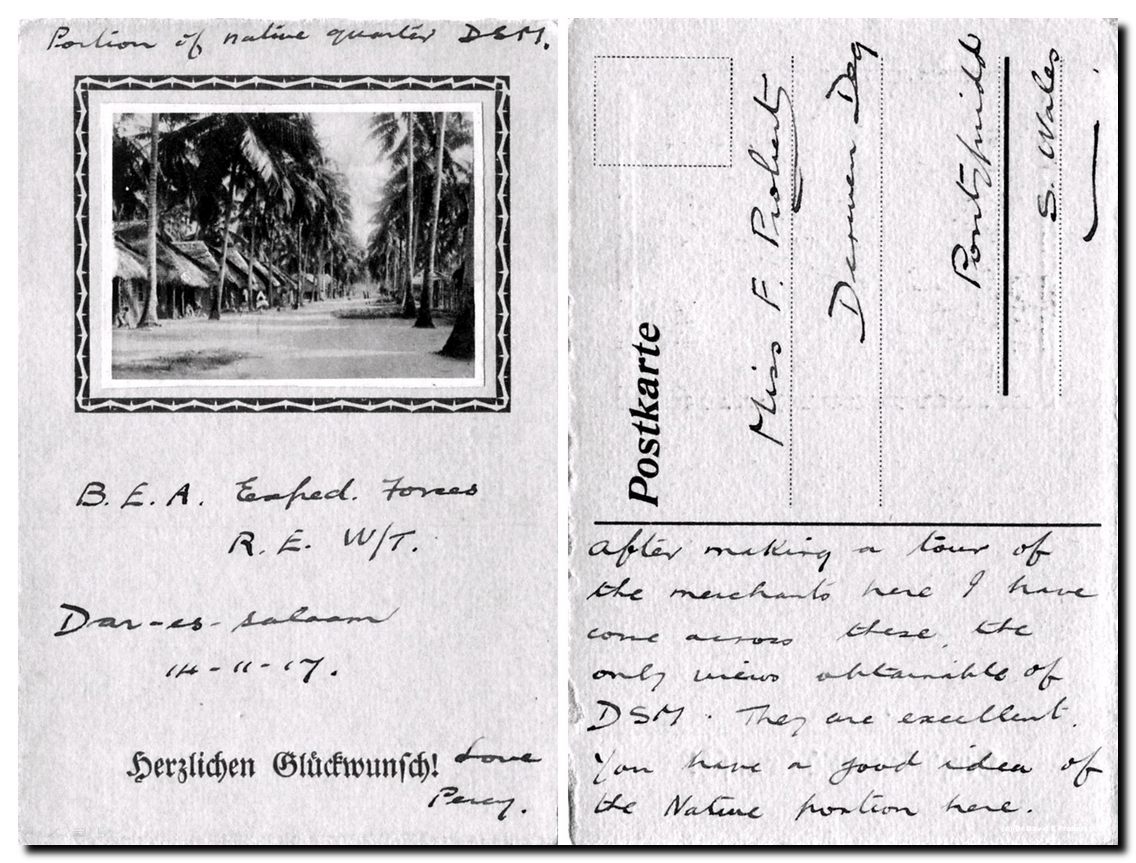 Portion of native quarter DSM.
B.E.A. Exped. Forces
R.E. W/T.
Dar-es-salaam
14-11-17.
Herzlichen Glückwunsch! Love
Percy.
Postkarte
Miss F. Probert
Derwen Deg
Pontypridd
S. Wales
After making a tour of
the merchants here I have
come across these, the
only views obtainable of
DSM. They are excellent.
You have a good idea of
the Native portion here.